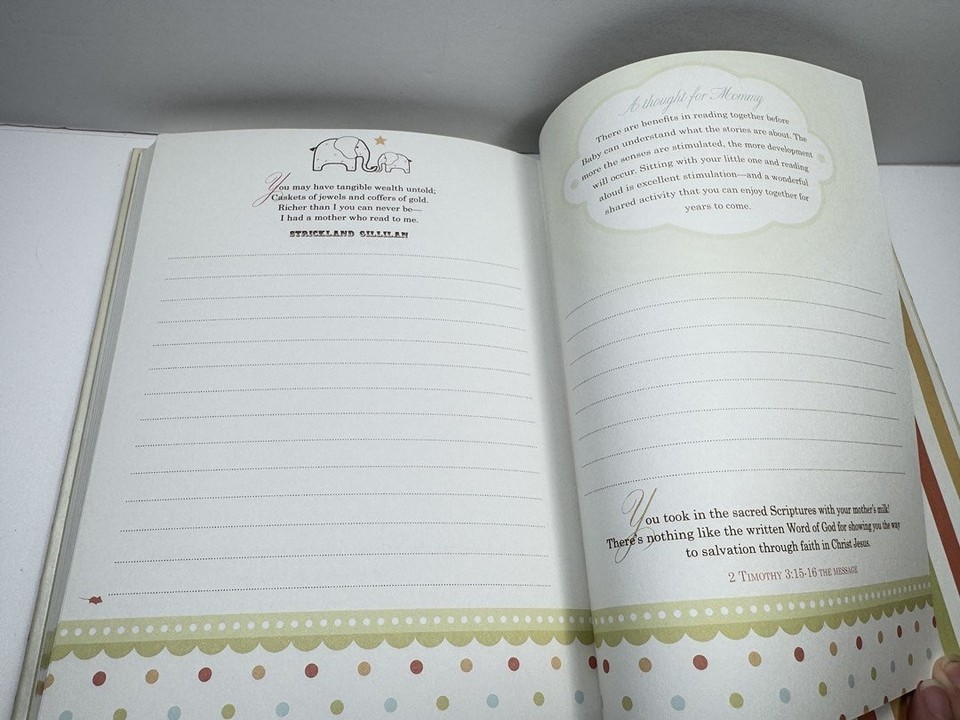 You may have tangible wealth untold;
Caskets of jewels and coffers of gold.
Richer than I you can never be—
I had a mother who read to me.
STRICKLAND GILLILAN
A thought for Mommy
There are benefits in reading together before
Baby can understand what the stories are about. The
more the senses are stimulated, the more development
will occur. Sitting with your little one and reading
aloud is excellent stimulation—and a wonderful
shared activity that you can enjoy together for
years to come.
You took in the sacred Scriptures with your mother's milk!
There's nothing like the written Word of God for showing you the way
to salvation through faith in Christ Jesus.
2 TIMOTHY 3:15-16 THE MESSAGE